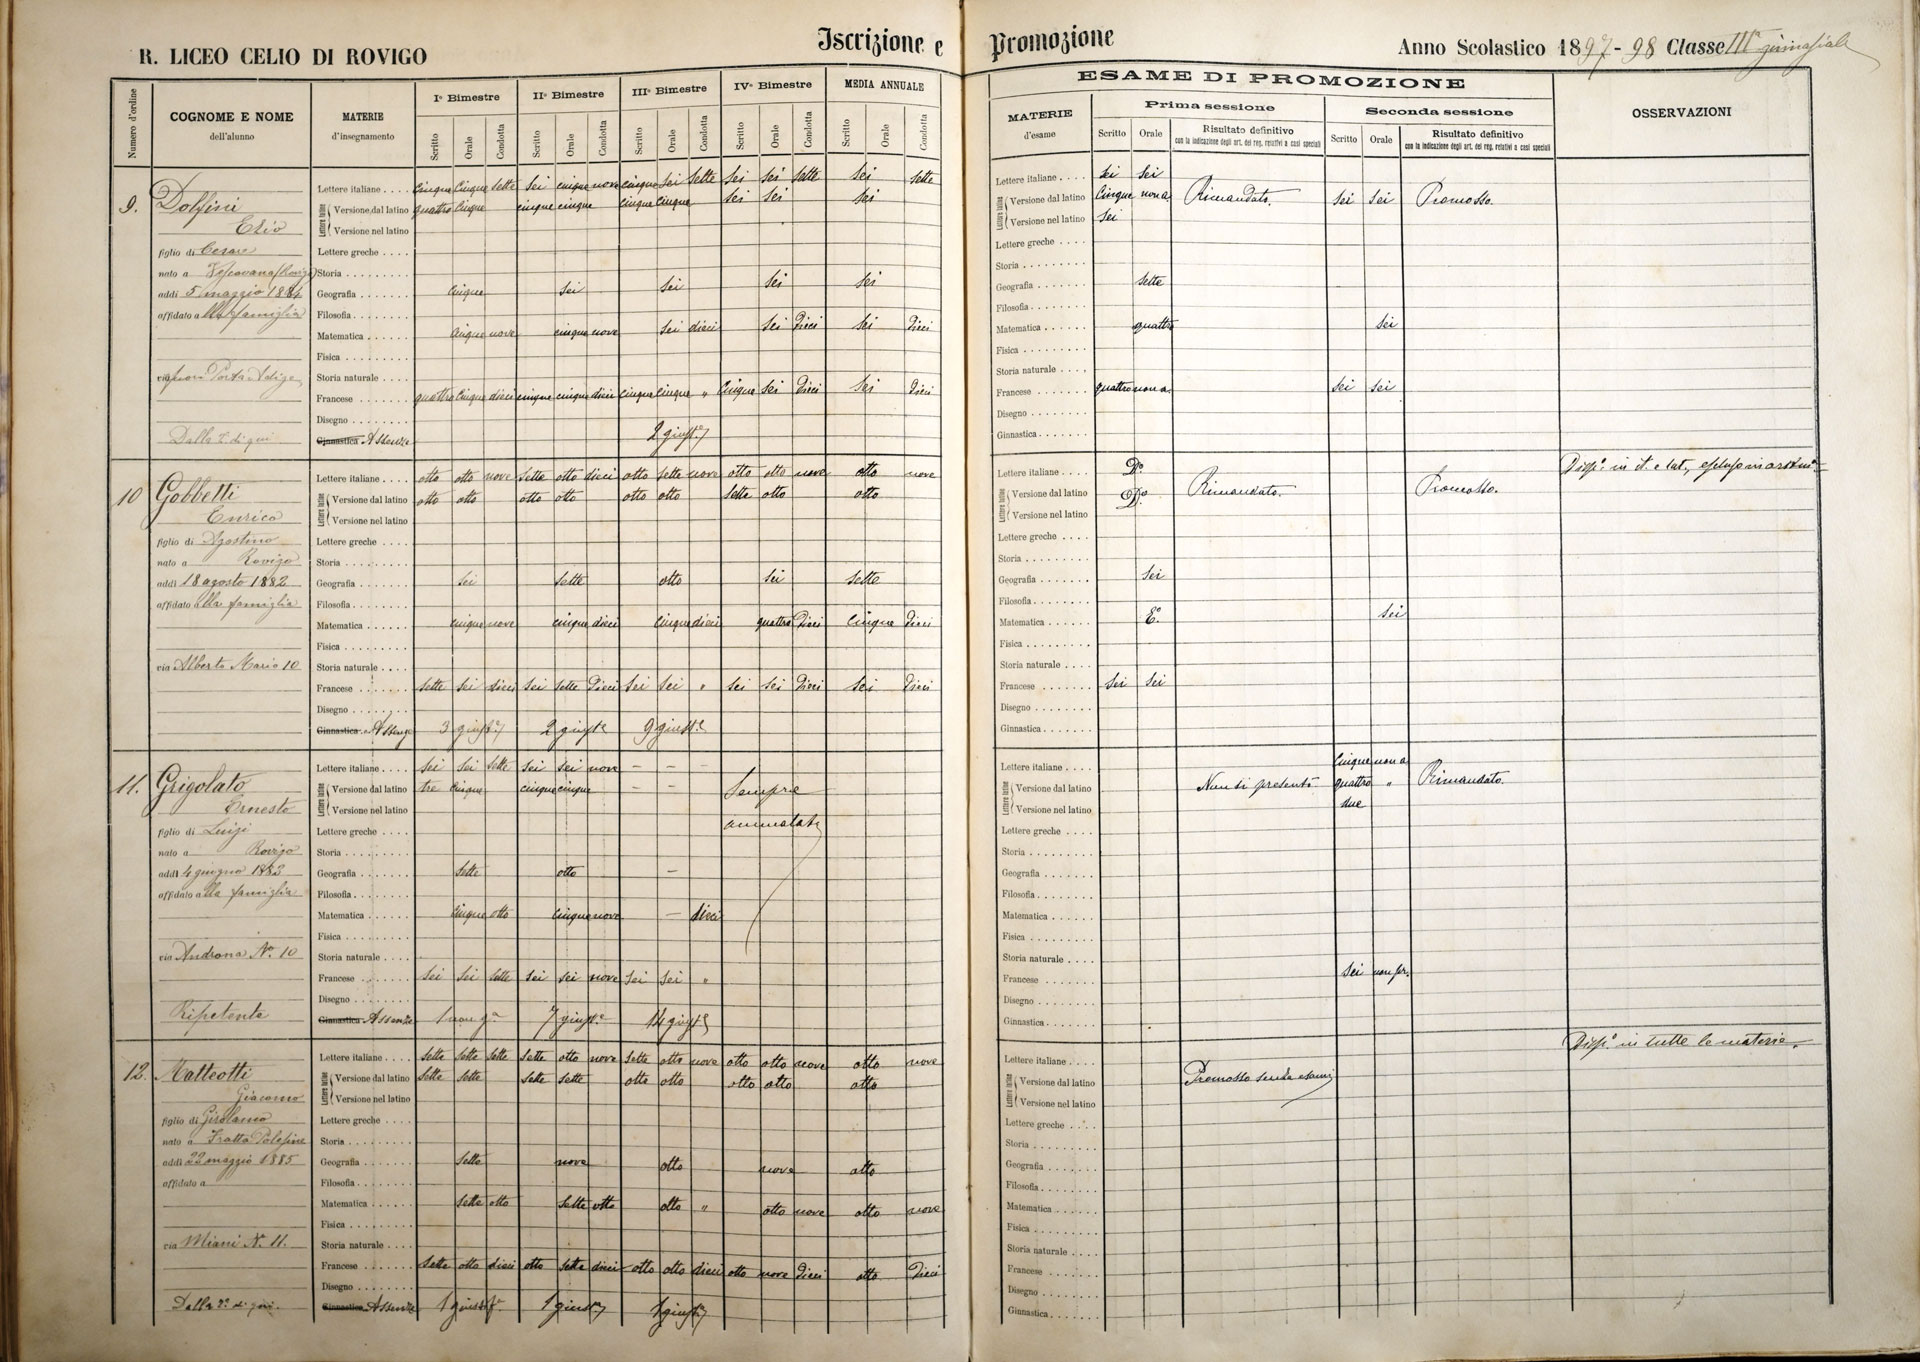 R. LICEO CELIO DI ROVIGO
Iscrizione e Promozione
Anno Scolastico 1897-98 Classe IIIª ginnasiale
Numero d'ordine
COGNOME E NOME dell'alunno
MATERIE d'insegnamento
Iº Bimestre
IIº Bimestre
IIIº Bimestre
IVº Bimestre
MEDIA ANNUALE
Scritto Orale Condotta Scritto Orale Condotta Scritto Orale Condotta Scritto Orale Condotta Scritto Orale Condotta
ESAME DI PROMOZIONE
MATERIE d'esame
Prima sessione
Seconda sessione
Scritto Orale Risultato definitivo
con la indicazione degli art. del reg. relativi a casi speciali
Scritto Orale Risultato definitivo
con la indicazione degli art. del reg. relativi a casi speciali
OSSERVAZIONI
9. Dolfini
Lettere italiane cinque cinque sette sei cinque nove cinque sei sette sei sei sette sei sette
Lettere latine
Versione dal latino quattro cinque cinque cinque cinque cinque sei sei sei
Versione nel latino
figlio di Cesare
Lettere greche
nato a
Storia
addì 5 maggio 1884
Geografia cinque sei sei sei sei
affidato alla famiglia
Filosofia
Matematica cinque nove cinque nove sei dieci sei Dieci sei Dieci
Fisica
via fuori Porta Adige
Storia naturale
Francese quattro cinque dieci cinque cinque dieci cinque cinque " cinque sei Dieci sei Dieci
Disegno
Dalla 2ª di qui
Ginnastica Assenze 2 giust.e
Lettere italiane sei sei
Versione dal latino cinque non a. Rimandato. sei sei Promosso.
Versione nel latino sei
Lettere greche
Storia
Geografia sette
Filosofia
Matematica quattro sei
Fisica
Storia naturale
Francese quattro non a. sei sei
Disegno
Ginnastica
10 Gobbetti
Enrico
Lettere italiane otto otto nove sette otto dieci otto sette nove otto otto nove otto nove
Versione dal latino otto otto otto otto otto otto sette otto otto
Versione nel latino
figlio di Agostino
Lettere greche
nato a Rovigo
Storia
addì 18 agosto 1882
Geografia sei sette otto sei sette
affidato alla famiglia
Filosofia
Matematica cinque nove cinque dieci cinque dieci quattro Dieci cinque Dieci
Fisica
via Alberto Mario 10
Storia naturale
Francese sette sei dieci sei sette Dieci sei sei " sei sei Dieci sei Dieci
Disegno
Ginnastica Assenze 3 giust.e 2 giust.e 9 giust.e
Lettere italiane Dº
Versione dal latino Dº Rimandato. Promosso.
Versione nel latino
Lettere greche
Storia
Geografia sei
Filosofia
Matematica Eº sei
Fisica
Storia naturale
Francese sei sei
Disegno
Ginnastica
Disp.º in it. e lat.,
11. Grigolato
Ernesto
Lettere italiane sei sei sette sei sei nove – – –
Versione dal latino tre cinque cinque cinque – – Sempre
Versione nel latino ammalato
figlio di Luigi
Lettere greche
nato a Rovigo
Storia
addì 4 giugno 1882
Geografia sette otto –
affidato alla famiglia
Filosofia
Matematica cinque otto cinque nove – dieci
Fisica
via Androna Nº 10
Storia naturale
Francese sei sei sette sei sei nove sei sei "
Disegno
Ripetente
Ginnastica Assenze 1 non g.ta 7 giust.e 14 giust.e
Lettere italiane cinque non a
Versione dal latino Non si presentò quattro " Rimandato.
Versione nel latino due
Lettere greche
Storia
Geografia
Filosofia
Matematica
Fisica
Storia naturale
Francese sei non pr.
Disegno
Ginnastica
12. Matteotti
Giacomo
Lettere italiane sette sette sette sette otto nove sette otto nove otto otto nove otto nove
Versione dal latino sette sette sette sette otto otto otto otto otto
Versione nel latino
figlio di Girolamo
Lettere greche
nato a Fratta Polesine
Storia
addì 22 maggio 1885
Geografia sette nove otto nove otto
affidato a
Filosofia
Matematica sette otto sette otto otto " otto nove otto nove
Fisica
via Miani Nº 11.
Storia naturale
Francese sette otto dieci otto sette dieci otto otto dieci otto nove Dieci otto Dieci
Disegno
Dalla 2ª di qui.
Ginnastica Assenze 1 giustif.a 1 giust.a 1 giust.a
Lettere italiane
Versione dal latino Promosso senza esami
Versione nel latino
Lettere greche
Storia
Geografia
Filosofia
Matematica
Fisica
Storia naturale
Francese
Disegno
Ginnastica
Disp.º in tutte le materie.